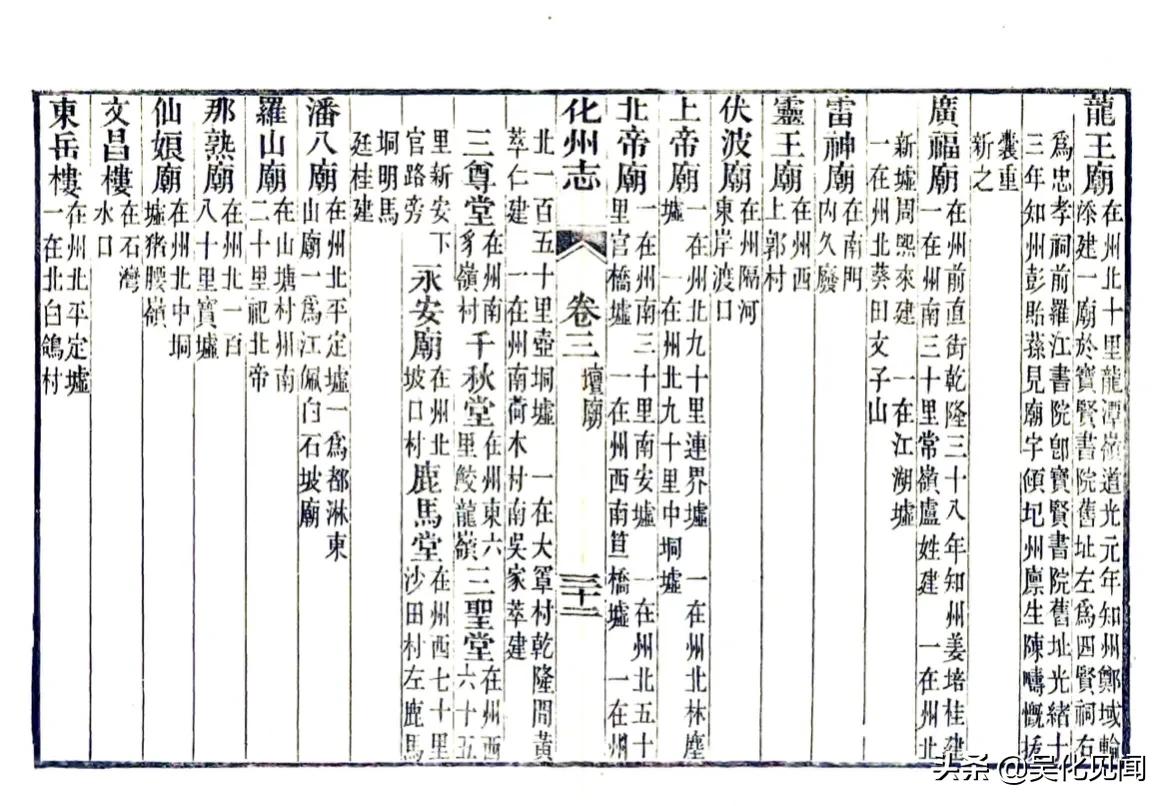 龍王廟在州北十里龍潭嶺道光元年知州鄭域輪
添建一廟於寶賢書院舊址左爲四賢祠右
爲忠孝祠前羅江書院卽寶賢書院舊址光緒十
三年知州彭貽蓀見廟宇傾圮州廪生陳疇慨捐
囊重
新之
廣福廟一在州前直街乾隆三十八年知州姜培桂建
一在州南三十里常嶺盧姓建 一在州北
新墟周熙來建 一在江湖墟
一在州北葵田文子山
雷神廟在南門
內久廢
靈王廟在州西
上郭村
伏波廟在州隔河
東岸渡口
上帝廟一在州北九十里連界墟 一在州北林塵
墟 一在州北九十里中垌墟
北帝廟一在州南三十里南安墟 一在州北五十
里官橋墟 一在州西南笪橋墟 一在州
化州志 卷三 壇廟 三十二
北一百五十里壺垌墟 一在大罩村乾隆間黃
萃仁建 一在州南荷木村南吳家萃建
三尊堂在州南
豸嶺村
千秋堂在州東六
里鮫龍嶺
三聖堂在州西
六十五
里新安下
官路旁
永安廟在州北
坡口村
鹿馬堂在州西七十里
沙田村左鹿馬
垌明馬
廷桂建
潘八廟在州北平定墟一爲都淋東
山廟一爲江佩白石坡廟
羅山廟在山塘村州南
二十里祀北帝
那熟廟在州北一百
八十里寶墟
仙娘廟在州北中垌
墟猪腰嶺
文昌樓在石灣
水口
東岳樓在州北平定墟
一在北白鴿村
头条 @吴化见闻